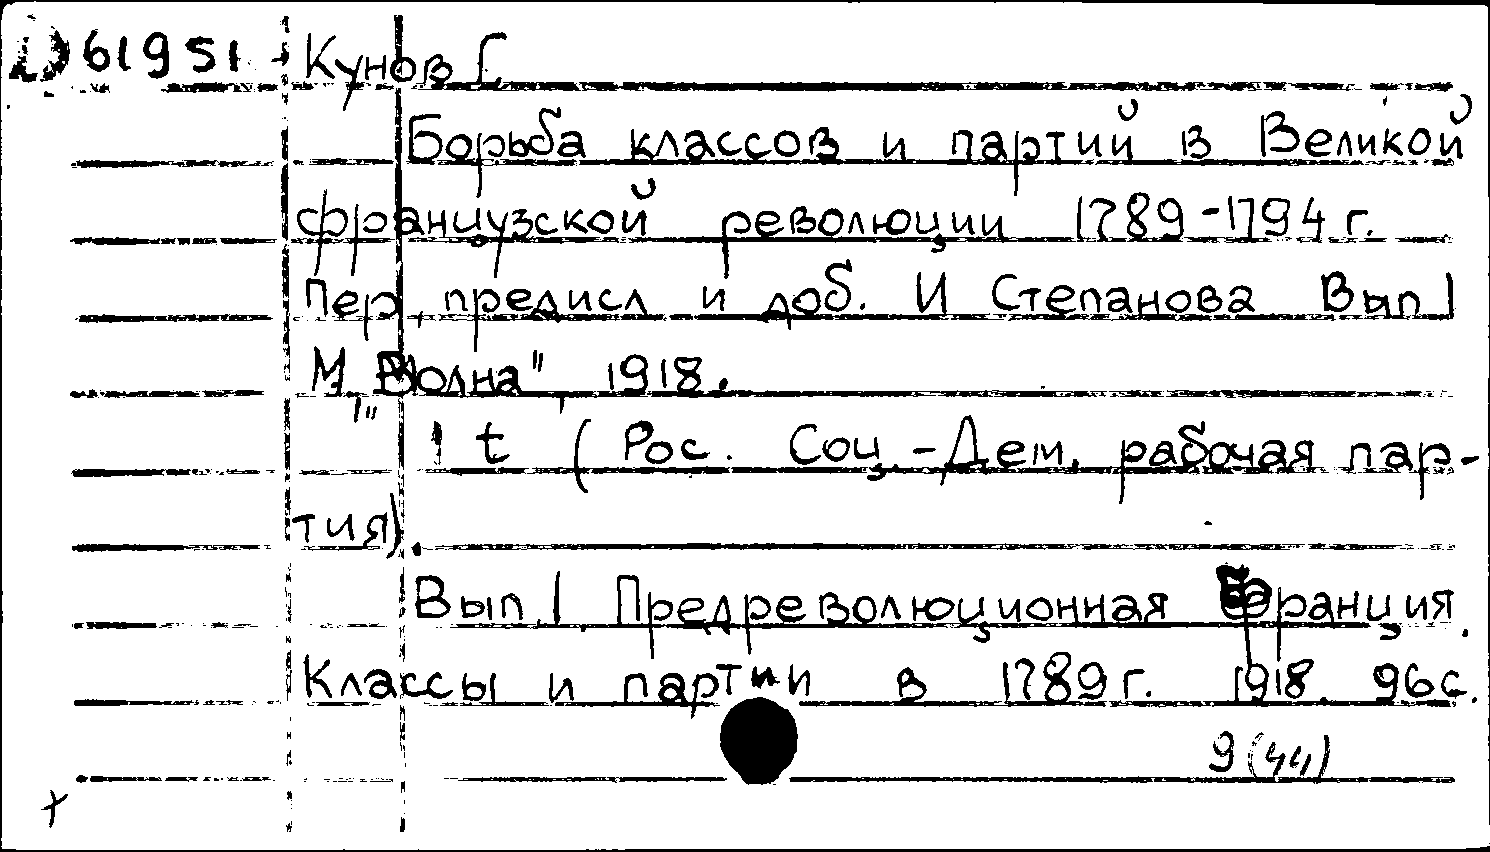 D 61951 Кунов Г.
Борьба классов и партий в Великой
французской революции 1789-1794 г.
Пер, предисл и доб. И Степанова Вып 1
М. "Волна", 1918.
1 t (Рос. Соц.-Дем. рабочая пар-
тия).
Вып. 1. Предреволюционная Франция.
Классы и партии в 1789 г. 1918. 96 с.
9(44)